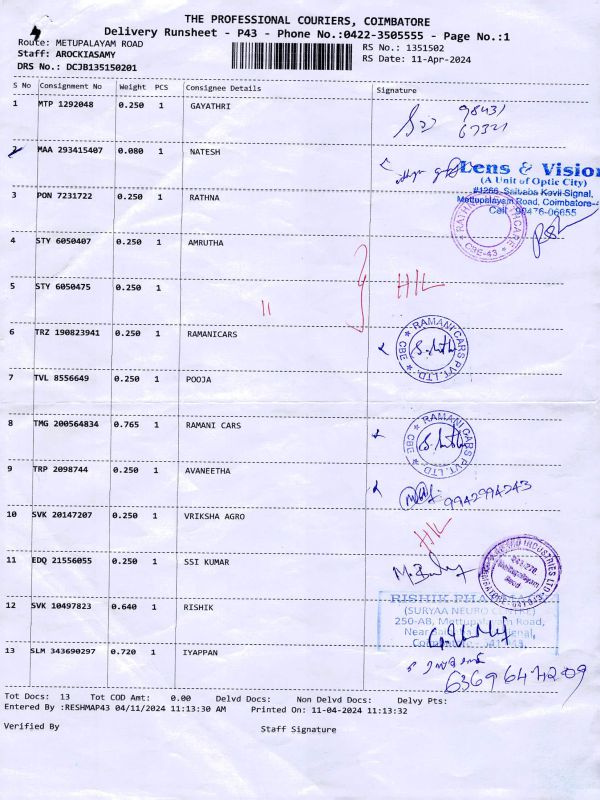 THE PROFESSIONAL COURIERS, COIMBATORE
Delivery Runsheet - P43 - Phone No.:0422-3505555 - Page No.:1
Route: METUPALAYAM ROAD RS No.: 1351502
Staff: AROCKIASAMY RS Date: 11-Apr-2024
DRS No.: DCJB135150201
S No Consignment No Weight PCS Consignee Details Signature
1 MTP 1292048 0.250 1 GAYATHRI
98431
67321
2 MAA 293415407 0.080 1 NATESH
Lens & Vision
(A Unit of Optic City)
#1266, Saibaba Kovil Signal,
Mettupalayam Road, Coimbatore-
Cell : 98476-06655
3 PON 7231722 0.250 1 RATHNA
CBE-43
4 STY 6050407 0.250 1 AMRUTHA
5 STY 6050475 0.250 1
11
H/L
6 TRZ 190823941 0.250 1 RAMANICARS
RAMANI CARS PVT. LTD. CBE
7 TVL 8556649 0.250 1 POOJA
8 TMG 200564834 0.765 1 RAMANI CARS
RAMANI CARS PVT. LTD. CBE
9 TRP 2098744 0.250 1 AVANEETHA
9942994243
10 SVK 20147207 0.250 1 VRIKSHA AGRO
H/L
11 EDQ 21556055 0.250 1 SSI KUMAR
INDUSTRIES LTD.
Mettupalayam
Road
12 SVK 10497823 0.640 1 RISHIK
RISHIK PHARMA
(SURYAA NEURO CENTRE)
250-AB, Mettupalayam Road,
Signal,
13 SLM 343690297 0.720 1 IYAPPAN
6369647209
Tot Docs: 13 Tot COD Amt: 0.00 Delvd Docs: Non Delvd Docs: Delvy Pts:
Entered By :RESHMAP43 04/11/2024 11:13:30 AM Printed On: 11-04-2024 11:13:32
Verified By Staff Signature